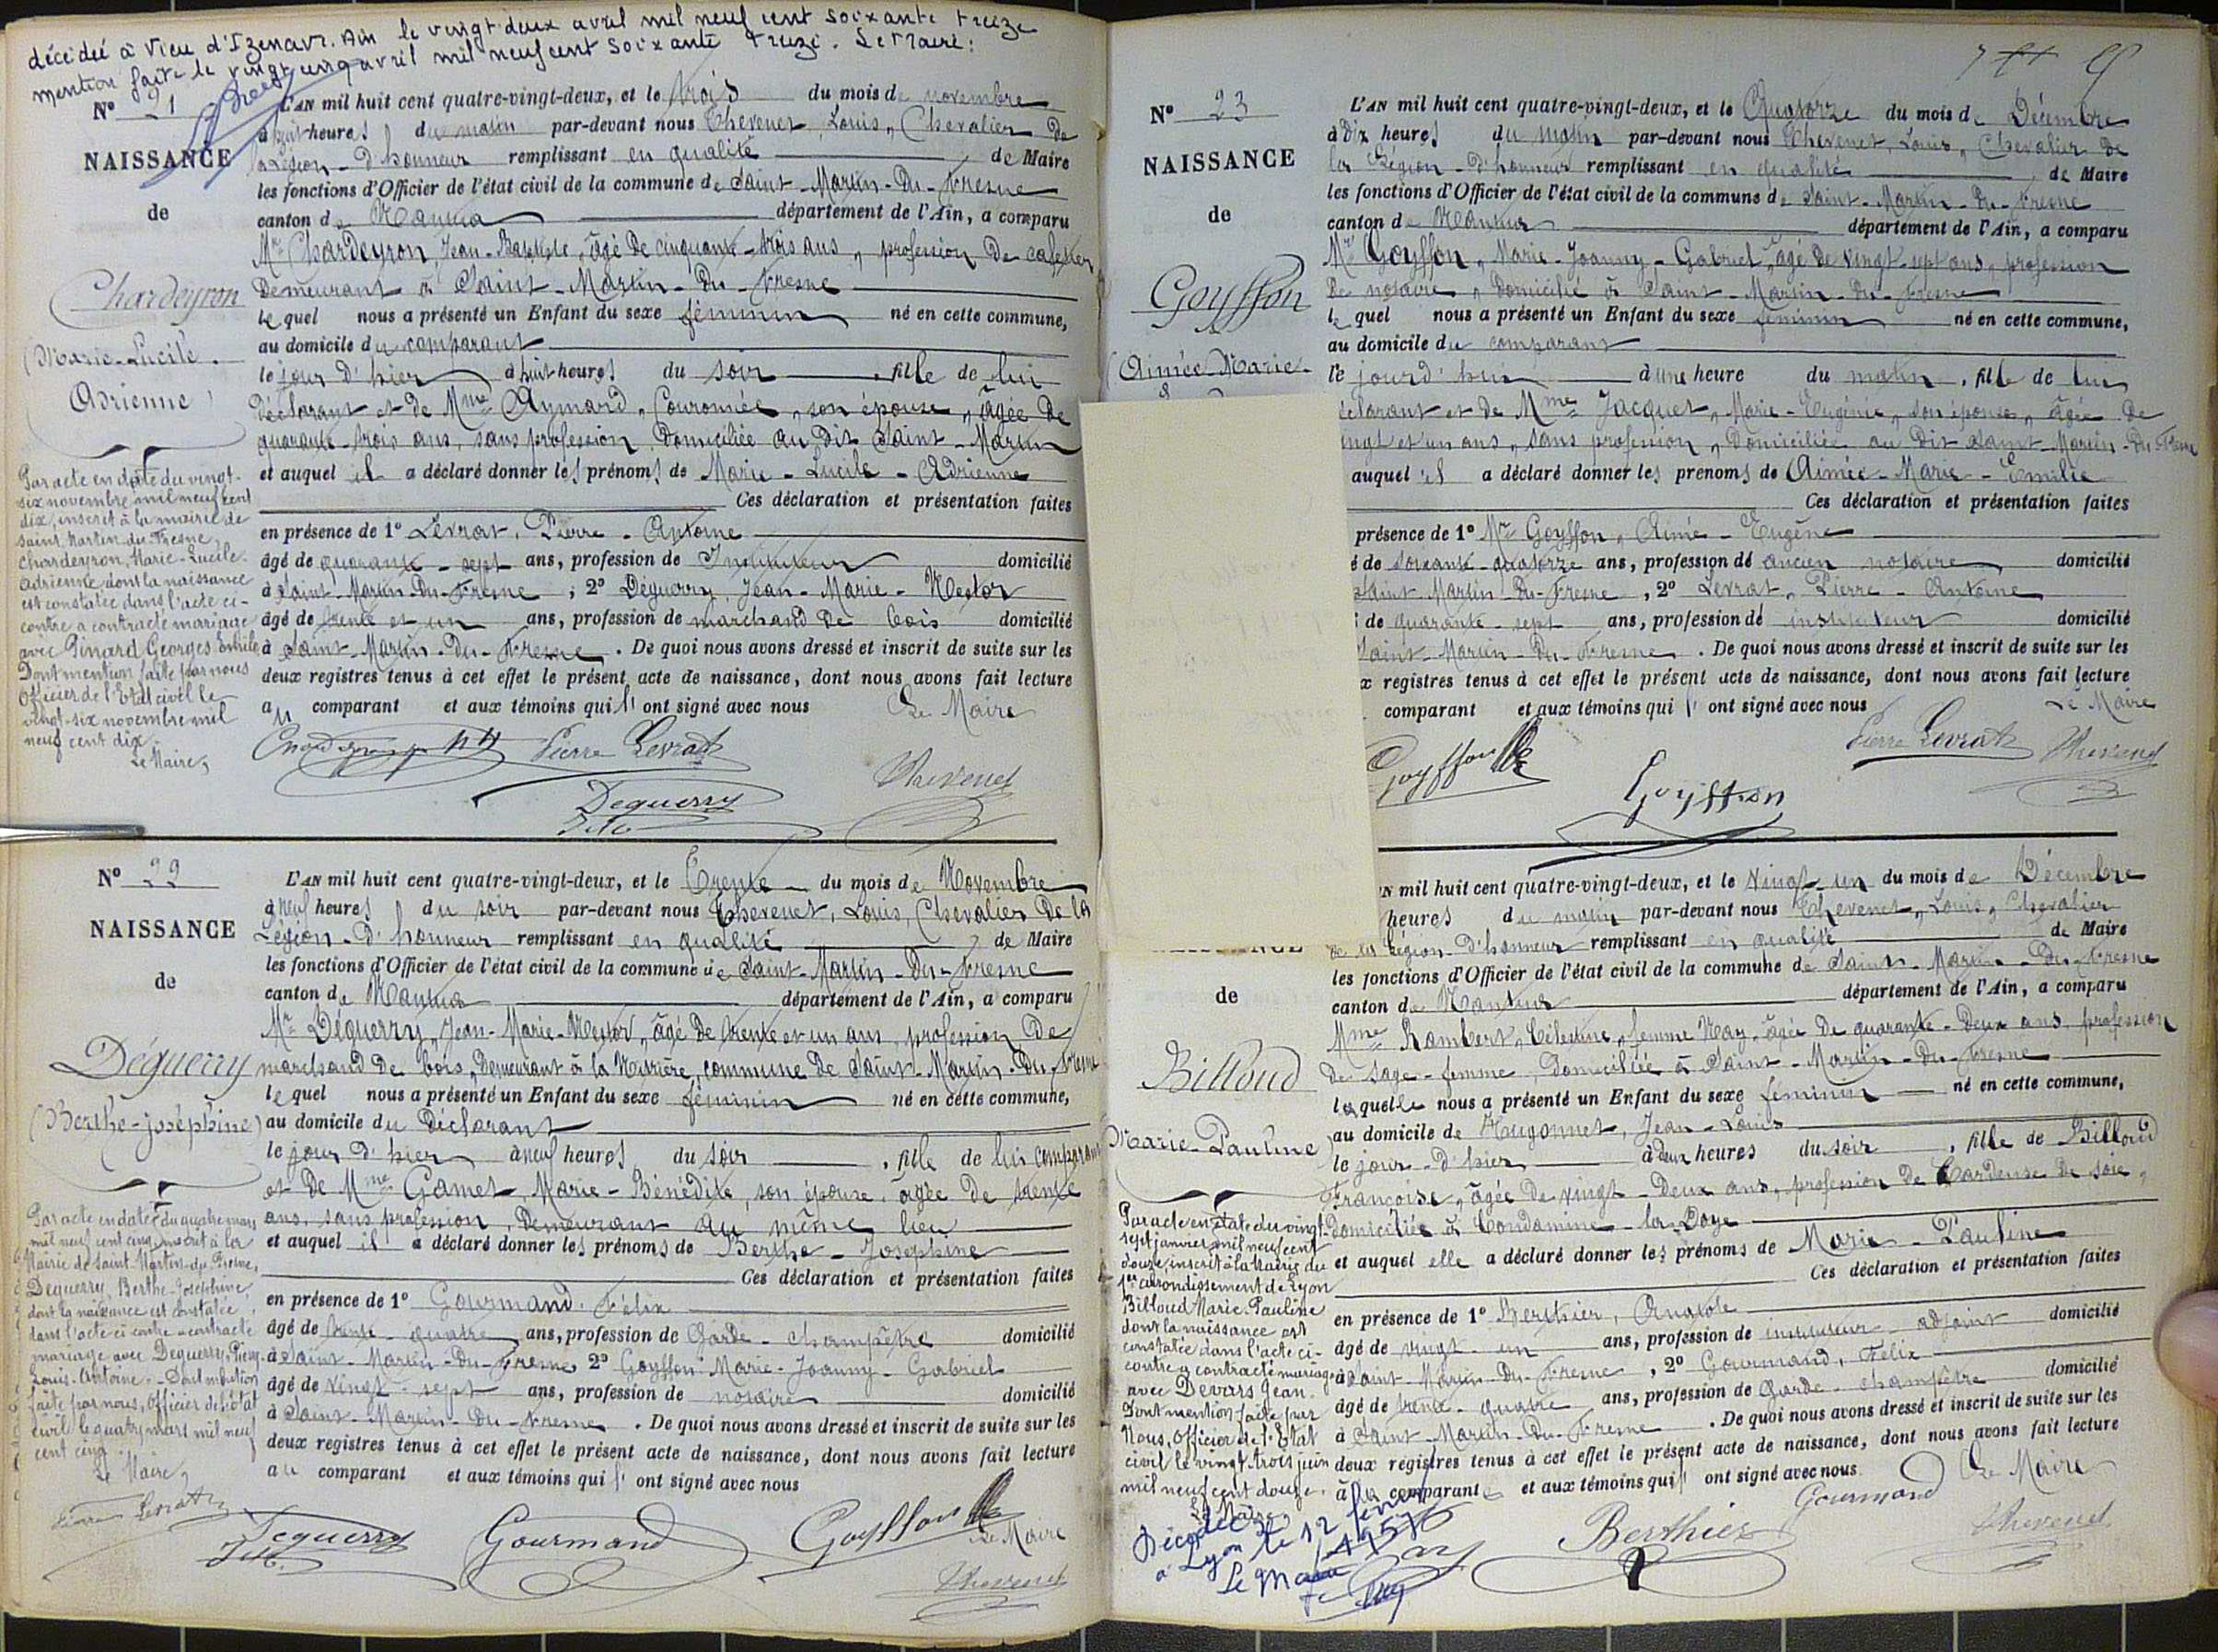 décédée à Vieu d'Izenave. Ain le vingt deux avril mil neuf cent soixante treize
mention faite le vingt cinq avril mil neuf cent soixante treize. Le Maire:
N° 21
NAISSANCE
de
Chardeyron
(Marie-Lucile
Adrienne)
Par acte en date du vingt-
six novembre mil neuf cent
dix, inscrit à la mairie de
Saint Martin du Fresne,
Chardeyron, Marie-Lucile-
Adrienne dont la naissance
est constatée dans l'acte ci-
contre a contracté mariage
avec Pinard Georges Emile
Dont mention faite par nous
Officier de l'Etat civil le
vingt-six novembre mil
neuf cent dix.
Le Maire,
L'AN mil huit cent quatre-vingt-deux, et le trois du mois de novembre
à huit heures du matin par-devant nous Thevenet, Louis, Chevalier De
la Légion-D'honneur remplissant en qualité de Maire
les fonctions d'Officier de l'état civil de la commune de Saint-Martin-Du-Fresne
canton de Nantua département de l'Ain, a comparu
Mr Chardeyron, Jean-Baptiste, âgé De cinquante-trois ans, profession De cafetier
Demeurant à Saint-Martin-Du-Fresne
lequel nous a présenté un Enfant du sexe féminin né en cette commune,
au domicile du comparant
le jour D'hier à huit heures du soir, fille de lui
Déclarant et de Mme Aymard, Couronnée, son épouse, âgée De
quarante-trois ans, sans profession, Domiciliée au Dit Saint-Martin
et auquel il a déclaré donner les prénoms de Marie-Lucile-Adrienne
Ces déclaration et présentation faites
en présence de 1° Levrat, Pierre-Antoine
âgé de quarante-sept ans, profession de Instituteur domicilié
à Saint-Martin-Du-Fresne; 2° Déguerry, Jean-Marie-Nestor
âgé de trente et un ans, profession de marchand De bois domicilié
à Saint-Martin-Du-Fresne. De quoi nous avons dressé et inscrit de suite sur les
deux registres tenus à cet effet le présent acte de naissance, dont nous avons fait lecture
au comparant et aux témoins qui l' ont signé avec nous Le Maire
Pierre Levrat
Thevenet
Deguerry
N° 22
NAISSANCE
de
Déguerry
(Berthe-joséphine)
Par acte en date du quatre mars
mil neuf cent cinq, inscrit à la
Mairie de Saint-Martin-du-Fresne,
Deguerry, Berthe-Joséphine
dont la naissance est constatée
dans l'acte ci-contre a contracté
mariage avec Deguerry, Pierre-
Louis-Antoine. Dont mention
faite par nous, Officier de l'état
civil le quatre mars mil neuf
cent cinq.
Le Maire,
Pierre Levrat
L'AN mil huit cent quatre-vingt-deux, et le Trente du mois de Novembre
à neuf heures du soir par-devant nous Thevenet, Louis, Chevalier De la
Légion-D'honneur remplissant en qualité de Maire
les fonctions d'Officier de l'état civil de la commune de Saint-Martin-Du-Fresne
canton de Nantua département de l'Ain, a comparu
Mr Déguerry, Jean-Marie-Nestor, âgé De trente et un ans, profession De
marchand De bois, Demeurant à la, commune De Saint-Martin-Du-Fresne
lequel nous a présenté un Enfant du sexe féminin né en cette commune,
au domicile du Déclarant
le jour D'hier à neuf heures du soir, fille de lui comparant
et De Mme Gamet, Marie-Bénédite, son épouse, âgée De trente
ans, sans profession, Demeurant au même lieu
et auquel il a déclaré donner les prénoms de Berthe-Joséphine
Ces déclaration et présentation faites
en présence de 1° Gourmand, Félix
âgé de trente-quatre ans, profession de Garde-champêtre domicilié
à Saint-Martin-Du-Fresne, 2° Goyffon Marie-Joanny-Gabriel
âgé de vingt-sept ans, profession de notaire domicilié
à Saint-Martin-Du-Fresne. De quoi nous avons dressé et inscrit de suite sur les
deux registres tenus à cet effet le présent acte de naissance, dont nous avons fait lecture
au comparant et aux témoins qui l' ont signé avec nous
Deguerry
Gourmand
Goyffon
Le Maire
Thevenet
N° 23
NAISSANCE
de
Goyffon
(Aimée-Marie-
L'AN mil huit cent quatre-vingt-deux, et le Quatorze du mois de Décembre
à dix heures du matin par-devant nous Thevenet, Louis, Chevalier De
la Légion-D'honneur remplissant en qualité de Maire
les fonctions d'Officier de l'état civil de la commune de Saint-Martin-Du-Fresne
canton de Nantua département de l'Ain, a comparu
Mr Goyffon, Marie-Joanny-Gabriel, âgé De vingt-sept ans, profession
De notaire, Domicilié à Saint-Martin-Du-Fresne
lequel nous a présenté un Enfant du sexe féminin né en cette commune,
au domicile du comparant
le jour d'hui à une heure du matin, fille de lui
éclarant et de Mme Jacquet, Marie-Eugénie, son épouse, âgée De
ingt et un ans, sans profession, Domiciliée au Dit Saint-Martin-Du-Fresne
auquel il a déclaré donner les prénoms de Aimée-Marie-Emilie
Ces déclaration et présentation faites
présence de 1° Mr Goyffon, Aimé-Eugène
é de soixante-quatorze ans, profession de ancien notaire domicilié
Saint-Martin-Du-Fresne, 2° Levrat, Pierre-Antoine
de quarante-sept ans, profession de instituteur domicilié
Saint-Martin-Du-Fresne. De quoi nous avons dressé et inscrit de suite sur les
x registres tenus à cet effet le présent acte de naissance, dont nous avons fait lecture
comparant et aux témoins qui l' ont signé avec nous Le Maire
Goyffon
Goyffon
Pierre Levrat
Thevenet
de
Billoud
Marie-Pauline
Par acte en date du vingt-
sept janvier mil neuf cent
douze, inscrit à la Mairie du
1er arrondissement de Lyon
Billoud Marie-Pauline
dont la naissance est
constatée dans l'acte ci-
contre a contracté mariage
avec Devars Jean.
Dont mention faite par
Nous, Officier de l'Etat
civil le vingt trois juin
mil neuf cent douze.
Le Maire,
Décédée
à Lyon le 12
Le Maire
N mil huit cent quatre-vingt-deux, et le vingt-un du mois de Décembre
heures du matin par-devant nous Thevenet, Louis, Chevalier
De la Légion-D'honneur remplissant en qualité de Maire
les fonctions d'Officier de l'état civil de la commune de Saint-Martin-Du-Fresne
canton de Nantua département de l'Ain, a comparu
Mme Rambert, Célestine, femme Nay, âgée De quarante-Deux ans, profession
De sage-femme, Domiciliée à Saint-Martin-Du-Fresne
laquelle nous a présenté un Enfant du sexe féminin né en cette commune,
au domicile de Hugonnet, Jean-Louis
le jour-D'hier à deux heures du soir, fille de Billoud
Françoise, âgée De vingt-Deux ans, profession De Cardeuse De soie,
domiciliée à Condamine-la-Doye
et auquel elle a déclaré donner les prénoms de Marie-Pauline
Ces déclaration et présentation faites
en présence de 1° Berthier, Anatole
âgé de vingt-un ans, profession de instituteur-adjoint domicilié
à Saint-Martin-Du-Fresne, 2° Gourmand, Félix
âgé de trente-quatre ans, profession de Garde-champêtre domicilié
à Saint-Martin-Du-Fresne. De quoi nous avons dressé et inscrit de suite sur les
deux registres tenus à cet effet le présent acte de naissance, dont nous avons fait lecture
à la comparante et aux témoins qui l' ont signé avec nous Le Maire
Gourmand
Berthier
Thevenet